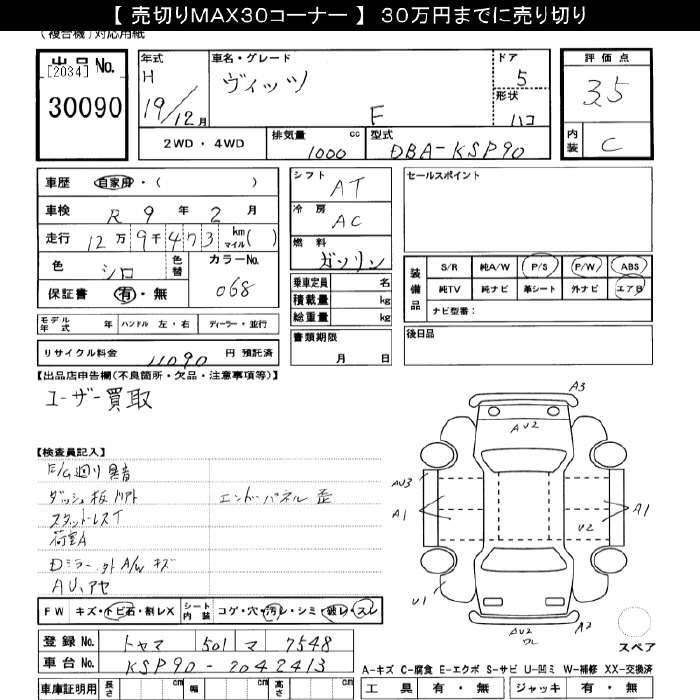 【 売切りMAX30コーナー 】 30万円までに売り切り
(複合機)対応用紙
出品 No.
[2034]
30090
年式
H
19/12月
車名・グレード
ヴィッツ
F
ドア
5
形状
ハコ
評価点
3.5
内装
C
2WD・4WD
排気量
1000 cc
型式
DBA-KSP90
車歴 自家用・( )
車検 R 9 年 2 月
走行 12万 9千 473 km マイル( )
色 シロ 色替
カラーNo. 068
保証書 有・無
シフト
AT
冷房
AC
燃料
ガソリン
乗車定員 名
積載量 kg
総重量 kg
書類期限
月 日
セールスポイント
装備品
S/R 純A/W P/S P/W ABS
純TV 純ナビ 革シート 外ナビ エアB
ナビ型番:
後日品
モデル年式 年 ハンドル 左・右 ディーラー・並行
リサイクル料金 11090 円 預託済
【出品店申告欄(不良箇所・欠品・注意事項等)】
ユーザー買取
【検査員記入】
E/G廻り異音
エンドパネル歪
スタットレスT
荷室A
Dミラー、外A/Wキズ
FW キズ・トビ石・割レX シート内装 コゲ・穴・汚レ・シミ・破レ・スレ
登録 No. トヤマ 501 マ 7548
車台 No. KSP90-2042413
車庫証明用 長さ cm 幅 cm 高さ cm
A3
AU2
AU3
A1
A1
U2
U1
AU2
A2
スペア
A-キズ C-腐食 E-エクボ S-サビ U-凹ミ W-補修 XX-交換済
工具 有・無 ジャッキ 有・無